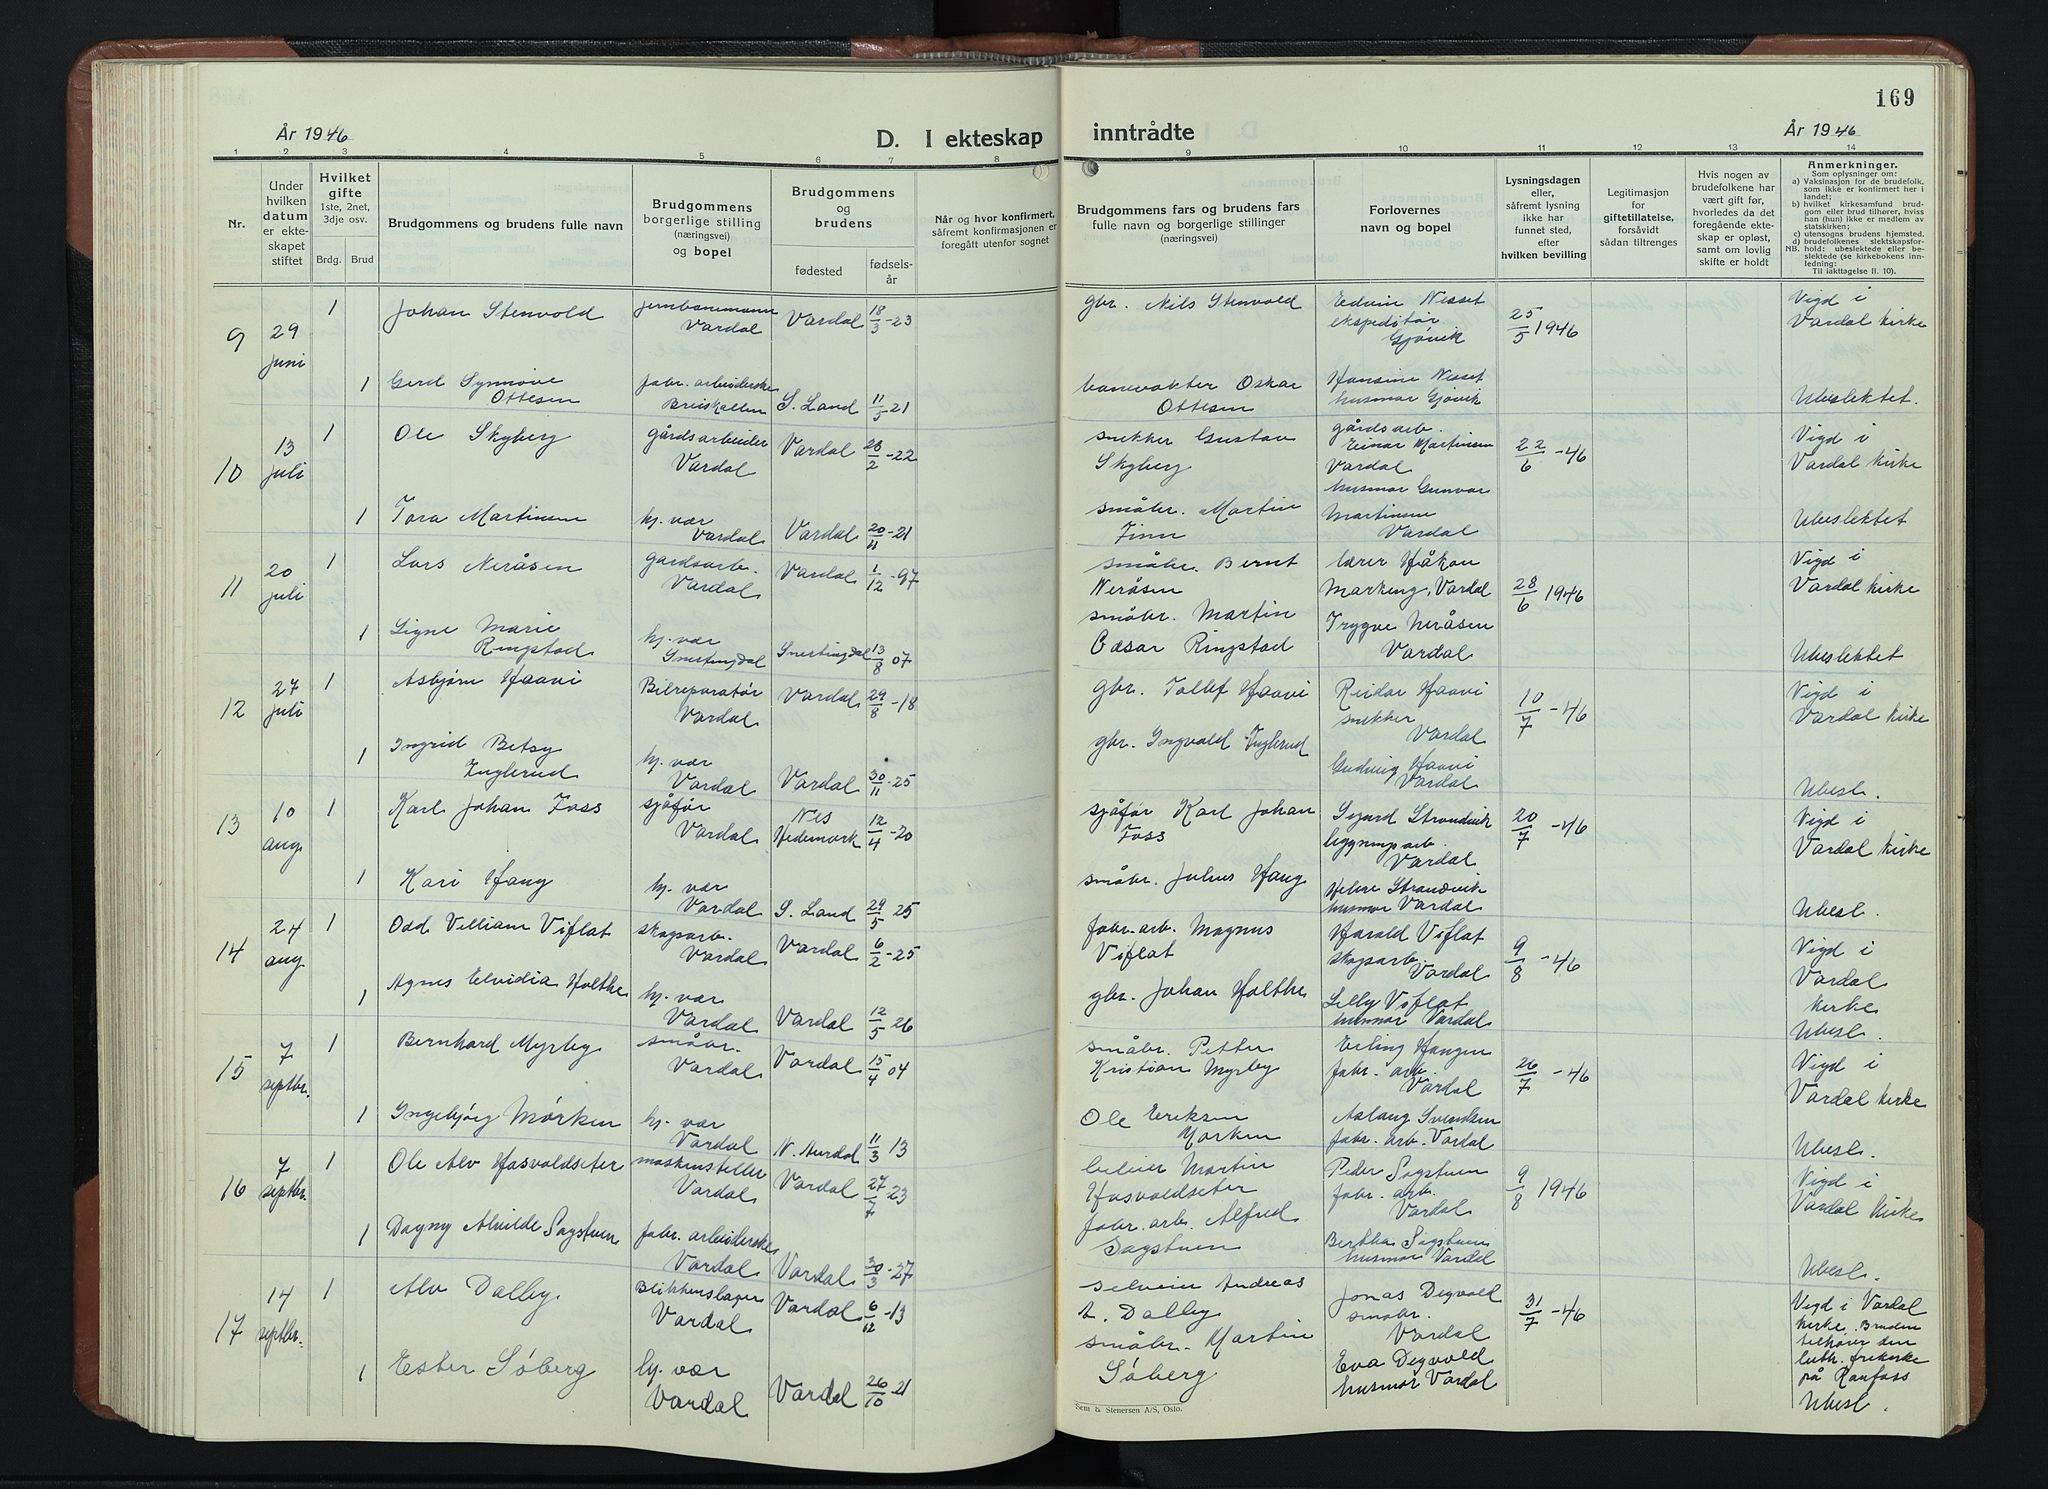 169
År 1946
D. I ekteskap inntrådte
År 1946
1 2 3 4 5 6 7 8 9 10 11 12 13 14
Nr.
Under hvilken datum er ekteskapet stiftet
Hvilket gifte 1ste, 2net, 3dje osv.
Brdg. Brud
Brudgommens og brudens fulle navn
Brudgommens borgerlige stilling (næringsvei) og bopel
Brudgommens og brudens
fødested
fødselsår
Når og hvor konfirmert, såfremt konfirmasjonen er foregått utenfor sognet
Brudgommens fars og brudens fars fulle navn og borgerlige stillinger (næringsvei)
Forlovernes navn og bopel
Lysningsdagen eller, såfremt lysning ikke har funnet sted, efter hvilken bevilling
Legitimasjon for giftetillatelse, forsåvidt sådan tiltrenges
Hvis nogen av brudefolkene har vært gift før, hvorledes da det foregående ekteskap er opløst, samt om lovlig skifte er holdt
Anmerkninger.
Som oplysninger om:
a) Vaksinasjon for de brudefolk, som ikke er konfirmert her i landet;
b) hvilket kirkesamfund brudgom eller brud tilhører, hviss han (hun) ikke er medlem av statskirken;
c) utensogns brudens hjemsted.
d) brudefolkenes slektskapsforhold: ubeslektede eller beslektede (se kirkebokens innledning:
NB. Til iakttagelse II. 10).
9 29 juni 1 Johan Stenvold jernbanemann Vardal Vardal 18/3-23 gbr. Nils Stenvold Edvin Nesset ekspeditør Gjøvik 25/5 1946 Vigd i Vardal kirke
1 Gerd Synnøve Ottesen fabr. arbeiderske Breiskallen S. Land 11/5-21 banevakter Oskar Ottesen Hansine Nesset husmor Gjøvik Ubeslektet.
10 13 juli 1 Ole Skyberg gårdsarbeider Vardal Vardal 28/2-22 snekker Gustav Skyberg gårdsarb. Einar Martinsen Vardal 22/6-46 Vigd i Vardal kirke
1 Tora Martinsen hj. vær Vardal Vardal 20/11-21 småbr. Martin Finn husmor Gunvor Martinsen Vardal Ubeslektet
11 20 juli 1 Lars Neråsen gardsarb. Vardal Vardal 1/12-97 småbr. Bernt Neråsen lærer Håkon Markeng, Vardal 28/6 1946 Vigd i Vardal kirke
1 Signe Marie Ringstad hj. vær Snertingdal Snertingdal 13/8 07 småbr. Martin Cæsar Ringstad Trygve Neråsen Vardal Ubeslektet
12 27 juli 1 Asbjørn Haavi Bilreparatør Vardal Vardal 29/8-18 gbr. Tollef Haavi Reidar Haavi snekker Vardal 10/7-46 Vigd i Vardal kirke
1 Ingrid Betsy Fuglerud hj. vær Vardal Vardal 30/11-25 gbr. Ingvald Fuglerud Gudveig Haavi Vardal Ubesl.
13 10 aug. 1 Karl Johan Foss sjåfør Vardal Nes Hedemark 12/4-20 sjåfør Karl Johan Foss Sigurd Strandvik leggningsarb. Vardal 20/7-46 Vigd i Vardal kirke
1 Kari Haug hj. vær Vardal S. Land 29/5 25 småbr. Julius Haug Helene Strandvik husmor Vardal Ubesl.
14 24 aug. 1 Odd Villiam Viflat skogsarb. Vardal Vardal 6/2-25 fabr. arb. Magnus Viflat Harald Viflat skogsarb. Vardal 9/8-46 Vigd i Vardal kirke
1 Agnes Elvidia Holthe hj. vær Vardal Vardal 12/5 26 gbr. Johan Holthe Lilly Viflat husmor Vardal Ubesl.
15 7 septbr. 1 Bernhard Myrby småbr. Vardal Vardal 15/4 04 småbr. Petter Kristian Myrby Erling Haugen fabr. arb. Vardal 26/7-46 Vigd i Vardal kirke
1 Ingebjørg Mørken hj. vær Vardal N. Aurdal 11/3 13 Ole Eriksen Mørken Aslaug Svendsen fabr. arb. Vardal Ubesl.
16 7 septbr. 1 Ole Alv Hasvoldseter maskinsteller Vardal Vardal 27/7 23 leieier Martin Hasvoldseter Peder Sagstuen fabr. arb. Vardal 9/8 1946 Vigd i Vardal kirke
1 Dagny Alvilde Sagstuen fabr. arbeiderske Vardal Vardal 30/3-27 fabr. arb. Alfred Sagstuen Bertha Sigstuen husmor Vardal Ubesl.
17 14 septbr. 1 Alv Dalby Blikkenslager Vardal Vardal 6/12-13 selveier Andreas A. Dalby Jonas Degvold småbr. Vardal 31/7-46 Vigd i Vardal kirke. Bruden tilhører den luth. frikirke på Raufoss
1 Ester Søberg hj. vær Vardal Vardal 26/10 21 småbr. Martin Søberg Eva Degvold husmor Vardal Ubesl.
Sem & Stenersen A/S, Oslo.